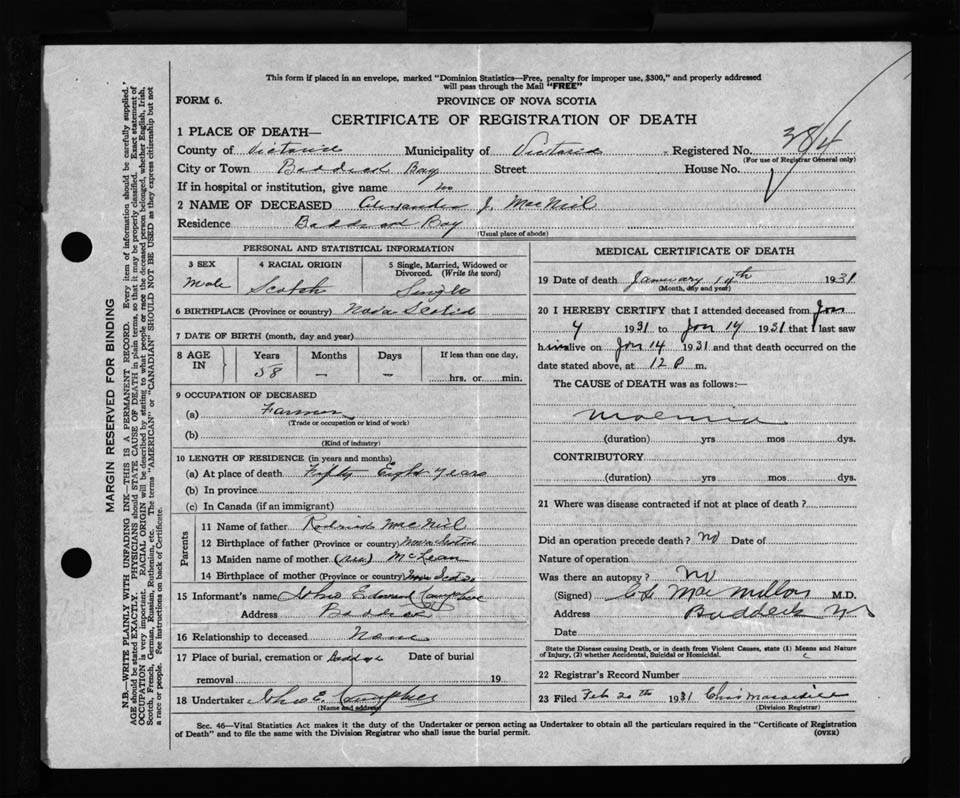 This form if placed in an envelope, marked "Dominion Statistics—Free, penalty for improper use, $300," and properly addressed
will pass through the Mail "FREE"
FORM 6.
PROVINCE OF NOVA SCOTIA
CERTIFICATE OF REGISTRATION OF DEATH
1 PLACE OF DEATH—
County of Victoria Municipality of Victoria Registered No. 384
(For use of Registrar General only)
City or Town Baddeck Bay Street House No.
If in hospital or institution, give name no
2 NAME OF DECEASED Alexander J. MacNeil
Residence Baddeck Bay
(Usual place of abode)
PERSONAL AND STATISTICAL INFORMATION
3 SEX 4 RACIAL ORIGIN 5 Single, Married, Widowed or
Divorced. (Write the word)
Male Scotch Single
6 BIRTHPLACE (Province or country) Nova Scotia
7 DATE OF BIRTH (month, day and year)
8 AGE IN Years Months Days If less than one day,
58 — — hrs. or min.
9 OCCUPATION OF DECEASED
(a) Farmer
(Trade or occupation or kind of work)
(b)
(Kind of industry)
10 LENGTH OF RESIDENCE (in years and months)
(a) At place of death Fifty Eight years
(b) In province
(c) In Canada (if an immigrant)
Parents
11 Name of father MacNeil
12 Birthplace of father (Province or country) Nova Scotia
13 Maiden name of mother McLean
14 Birthplace of mother (Province or country) Nova Scotia
15 Informant's name John Edward Campbell
Address Baddeck
16 Relationship to deceased None
17 Place of burial, cremation or Baddeck Date of burial
removal 19
18 Undertaker John E. Campbell
(Name and address)
MEDICAL CERTIFICATE OF DEATH
19 Date of death January 14th 1931
(Month, day and year)
20 I HEREBY CERTIFY that I attended deceased from Jan
7 1931 to Jan 14 1931 that I last saw
him alive on Jan 14 1931 and that death occurred on the
date stated above, at 12 P m.
The CAUSE OF DEATH was as follows:—
(duration) yrs mos dys.
CONTRIBUTORY
(duration) yrs mos dys.
21 Where was disease contracted if not at place of death?
Did an operation precede death? no Date of
Nature of operation
Was there an autopsy? no
(Signed) MacMillan M.D.
Address Baddeck N S
Date
State the Disease causing Death, or in death from Violent Causes, state (1) Means and Nature
of Injury, (2) whether Accidental, Suicidal or Homicidal.
22 Registrar's Record Number
23 Filed Feb 20th 1931
(Division Registrar)
Sec. 46—Vital Statistics Act makes it the duty of the Undertaker or person acting as Undertaker to obtain all the particulars required in the "Certificate of Registration
of Death" and to file the same with the Division Registrar who shall issue the burial permit.
(OVER)
MARGIN RESERVED FOR BINDING
N.B.—WRITE PLAINLY WITH UNFADING INK—THIS IS A PERMANENT RECORD. Every item of information should be carefully supplied.
AGE should be stated EXACTLY. PHYSICIANS should STATE CAUSE OF DEATH in plain terms, so that it may be properly classified. Exact statement of
OCCUPATION is very important. RACIAL ORIGIN will be described by stating to what people or race the deceased person belonged, whether English, Irish,
Scotch, French, German, Russian, Ruthenian, etc. The terms "AMERICAN" or "CANADIAN" SHOULD NOT BE USED as they express citizenship but not
a race or people. See instructions on back of Certificate.